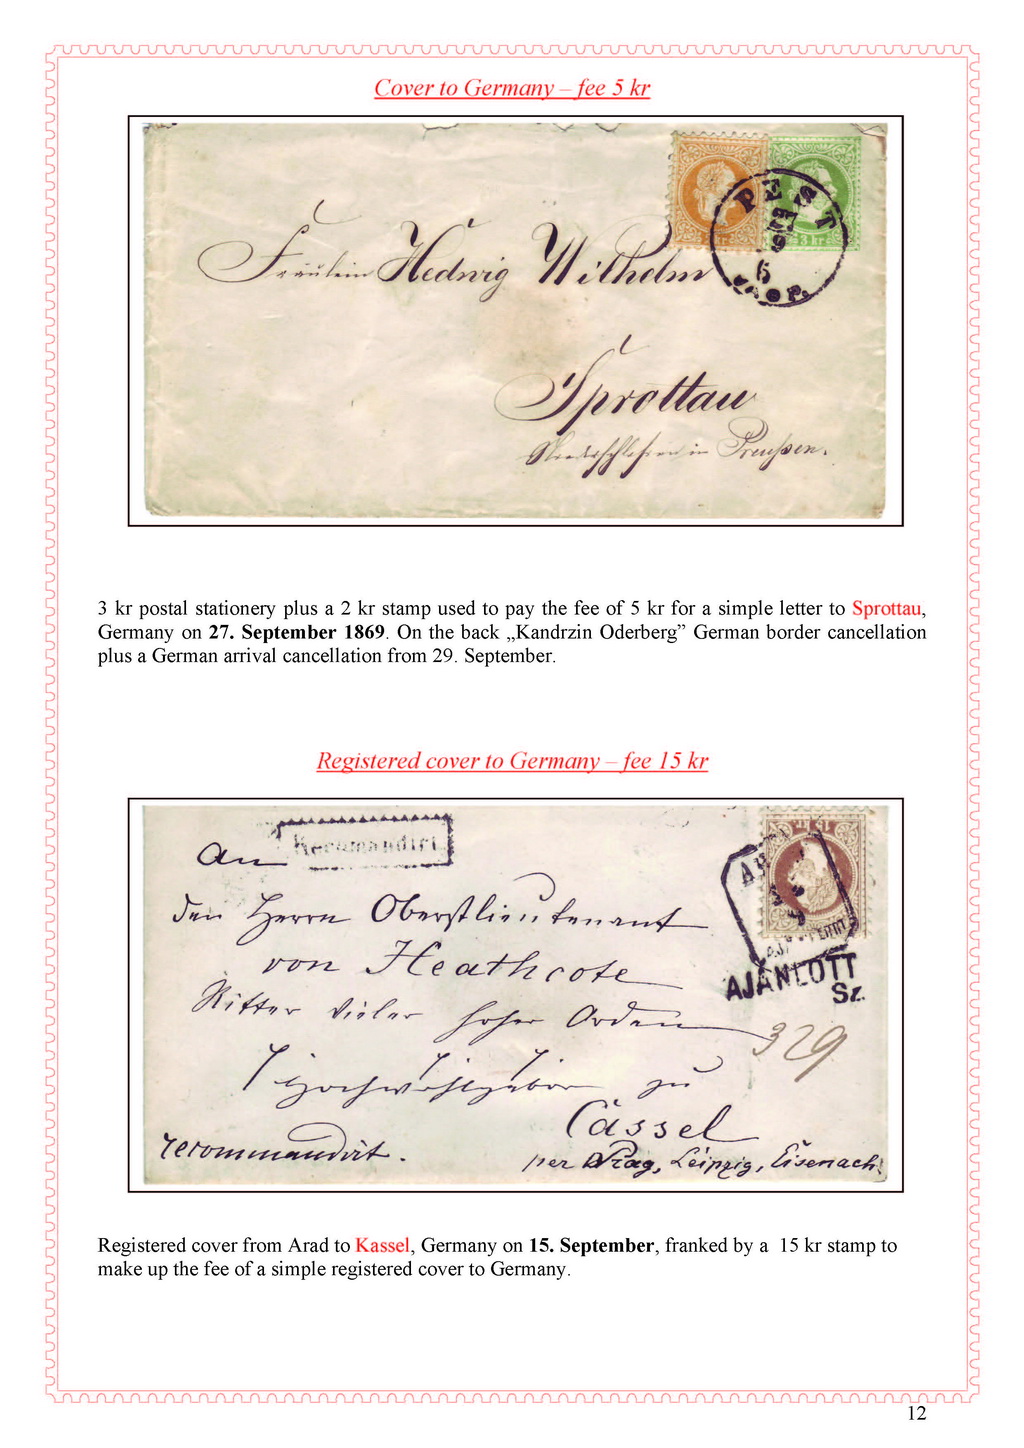 Cover to Germany – fee 5 kr
3 kr
PEST
Fräulein Hedwig Wilhelm
Sprottau
Niederschlesien in Preußen.
3 kr postal stationery plus a 2 kr stamp used to pay the fee of 5 kr for a simple letter to Sprottau,
Germany on 27. September 1869. On the back „Kandrzin Oderberg” German border cancellation
plus a German arrival cancellation from 29. September.
Registered cover to Germany – fee 15 kr
Recommandirt
An
den Herrn Oberstlieutenant
von Heathcote
Ritter vieler hoher Orden
Hochwohlgebor zu
Cassel
recommandirt.
per Prag, Leipzig, Eisenach
AJÁNLOTT
Sz.
329
Registered cover from Arad to Kassel, Germany on 15. September, franked by a 15 kr stamp to
make up the fee of a simple registered cover to Germany.
12